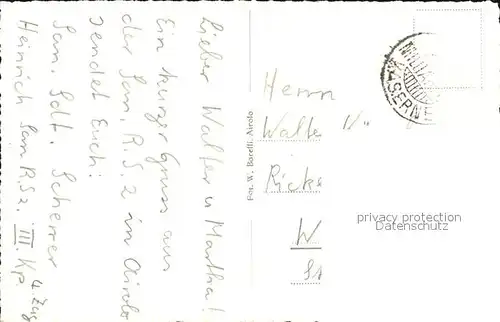 Lieber Walter u Martha!
Ein kurzer Gruss aus
der San. R.S. 2 in Airolo
sendet Euch:
San. Sdt. Scherrer
Heinrich San R.S 2. III. Kp.
4. Zug
Fot. W. Borelli, Airolo
Herrn
Walte
Ricke
W
privacy protection
Datenschutz